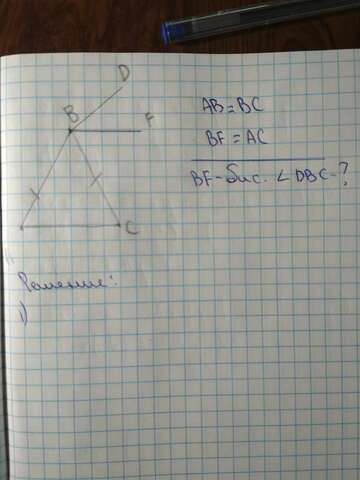 D
B
F
C
AB = BC
BF = AC
BF - бис. ∠ DBC - ?
Решение:
1)